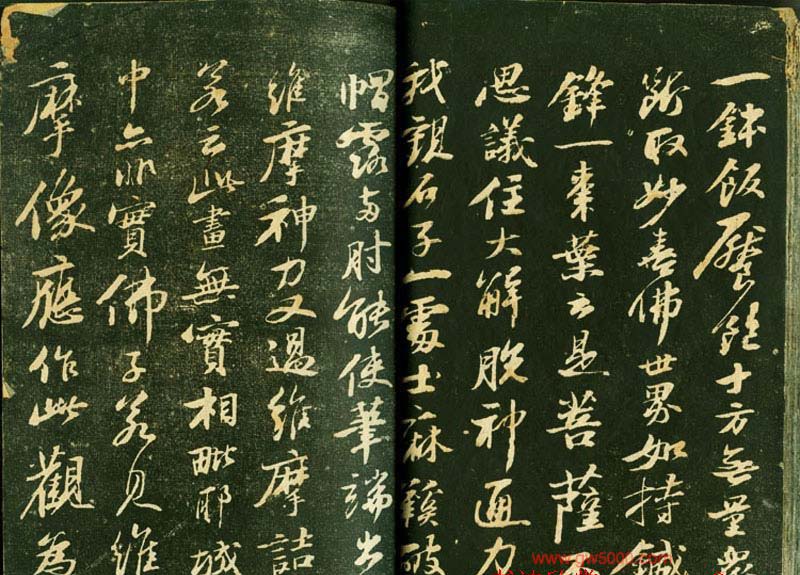 一鉢飯饜飽十方無量眾
斷取妙喜佛世界如持鍼
鋒一棗葉云是菩薩
思議住大解脫神通力
我觀石子一處士麻鞵破
帽露兩肘能使筆端出
維摩神力又過維摩詰
若云此畫無實相毗耶城
中亦非實佛子若見維
摩像應作此觀為
www.gw5000.com